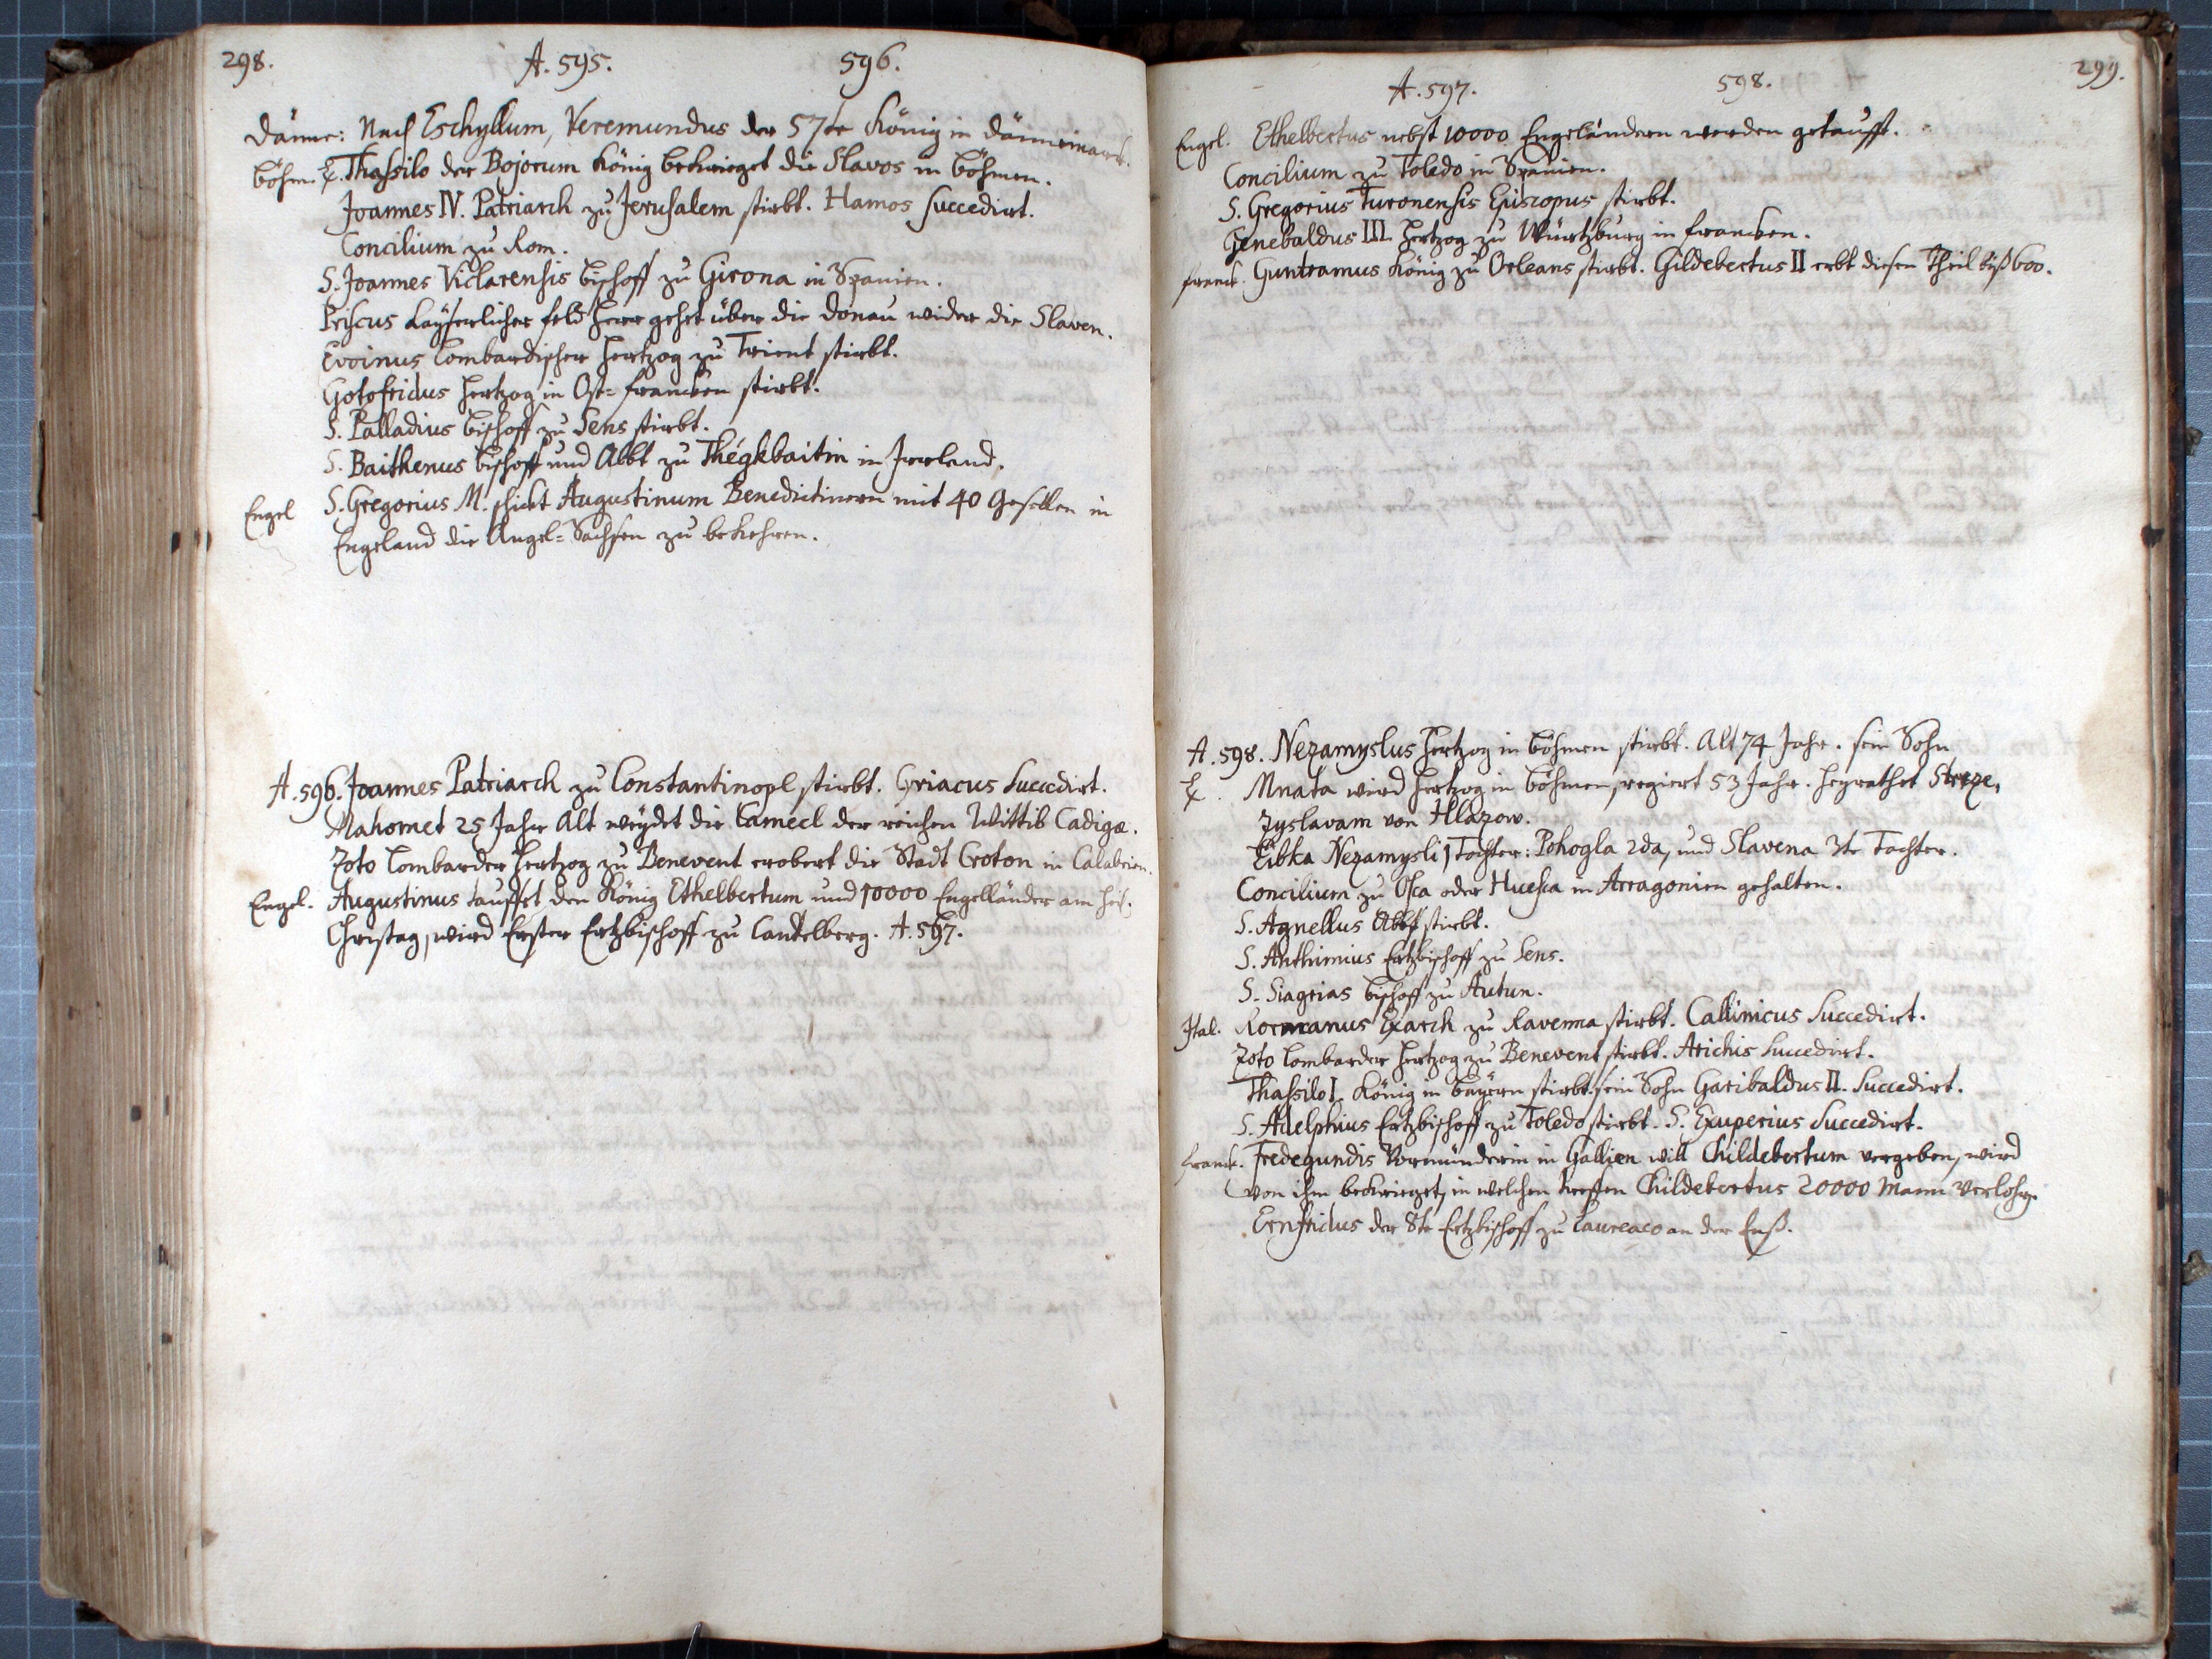 298. A. 595. 596.
Dänne: Nach Eschyllum, Veremundus der 57te König in Dännemarck.
Böhm. &. Thassilo der Bojorum König bekrieget die Slavos in Böhmen.
Joannes IV. Patriarch zu Jerusalem stirbt. Hamos succedirt.
Concilium zu Rom.
S. Joannes Viclarensis Bischoff zu Girona in Spanien.
Priscus Kayserlicher Feld Herr gehet über die Donau wider die Slaven.
Evoinus Lombardischer Hertzog zu Trient stirbt.
Gotofridus Hertzog in Ost-Francken stirbt.
S. Palladius Bischoff zu Sens stirbt.
S. Baithenus Bischoff und Abbt zu Thégkbaitin in Irrland.
Engel S. Gregorius M. schickt Augustinum Benedictinern mit 40 Gesellen in
Engeland die Angel-Sachsen zu bekehren.
A. 596. Joannes Patriarch zu Constantinopl stirbt. Cyriacus Succedirt.
Mahomet 25 Jahr Alt weydet die Cameel der reichen Wittib Cadigæ.
Zoto Lombarder Hertzog zu Benevent erobert die Stadt Croton in Calabrien.
Engel. Augustinus tauffet den König Ethelbertum und 10000 Engelländer am Heil.
Christag, wird Erster Ertzbischoff zu Cantelberg. A. 597.
A. 597. 598. 299.
Engel. Ethelbertus nebst 10000 Engeländern werden getaufft.
Concilium zu Toledo in Spanien.
S. Gregorius Turonensis Episcopus stirbt.
Genebaldus III Hertzog zu Würtzburg in Francken.
Franck. Guntramus König zu Orleans stirbt. Gildebertus II erbt diesen Theil biß 600.
A. 598. Nezamyslus Hertzog in Böhmen stirbt. Alt 74 Jahr. sein Sohn
&. Mnata wird Hertzog in Böhmen, regiert 53 Jahr. Heyrathet Streze,
Zyslavam von Hlazow.
Libka Nezamysli 1 Tochter: Pohogla 2da, und Slavena 3te Tochter.
Concilium zu Osca oder Huesca in Arragonien gehalten.
S. Agnellus Abbt stirbt.
S. Anthimius Ertzbischoff zu Sens.
S. Siagrias Bischoff zu Autun.
Ital. Romanus Exarch zu Ravenna stirbt. Callinicus Succedirt.
Zoto Lombarder Hertzog zu Benevent stirbt. Arichis Succedirt.
Thassilo I. König in Bayern stirbt. sein Sohn Garibaldus II. Succedirt.
S. Adelphius Ertzbischoff zu Toledo stirbt. S. Exuperius Succedirt.
Franck. Fredegundis Vormünderin in Gallien will Childebertum vergeben, wird
von ihm bekrieget, in welchen treffen Childebertus 20000 Mann Verlohr.
Ernfridus der 8te Ertzbischoff zu Laureaco an der Enß.